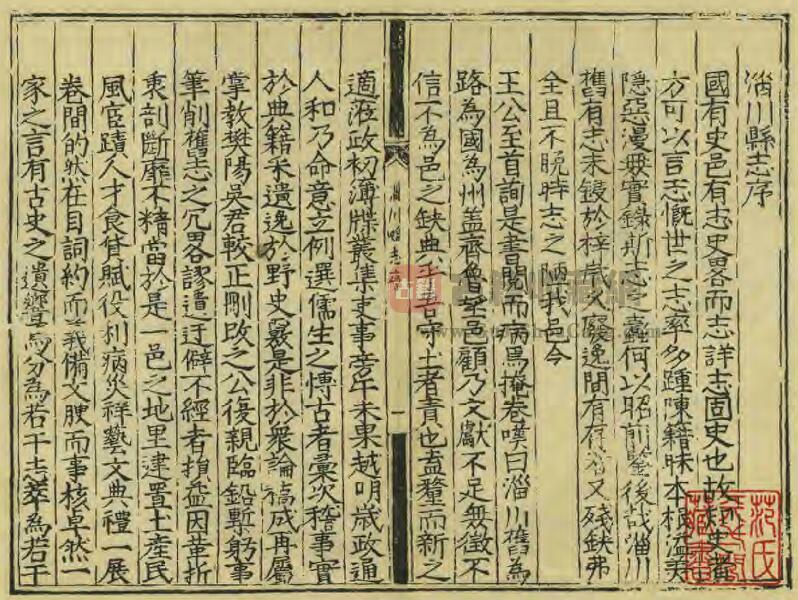 淄川縣志序
國有史邑有志史畧而志詳志固史也故 史
方可以言志慨世之志率多踵陳籍昧本根溢美
隱惡漫無實錄斯志之蠹何以昭前鑒後哉淄川
舊有志未鋟於梓歲久廢逸間有存者又殘缺弗
全且不晚時志之陋我邑今
王公至首詢是書閱而病焉掩卷嘆曰淄川舊為
路為國為州盖齊魯望邑顧乃文獻不足無徵不
信不為邑之缺典乎吾守土者責也盍釐而新之
淄川縣志序 一
適涖政初簿牒叢集吏事旁午未果越明歲政通
人和乃命意立例選儒生之愽古者彙次稽事實
於典籍采遺逸於野史覈是非於衆論稿成再屬
掌教樊陽吳君較正刪改之公復親臨鉛槧躬事
筆削舊志之冗畧謬遺迂僻不經者損益因革折
衷剖斷靡不精當於是一邑之地里建置土產民
風宦蹟人才食貨賦役利病災祥藝文典禮一展
卷間的然在目詞約而義備文腴而事核卓然一
家之言有古史之遺響焉分為若干志萃為若干
范氏天一閣藏書
古籍